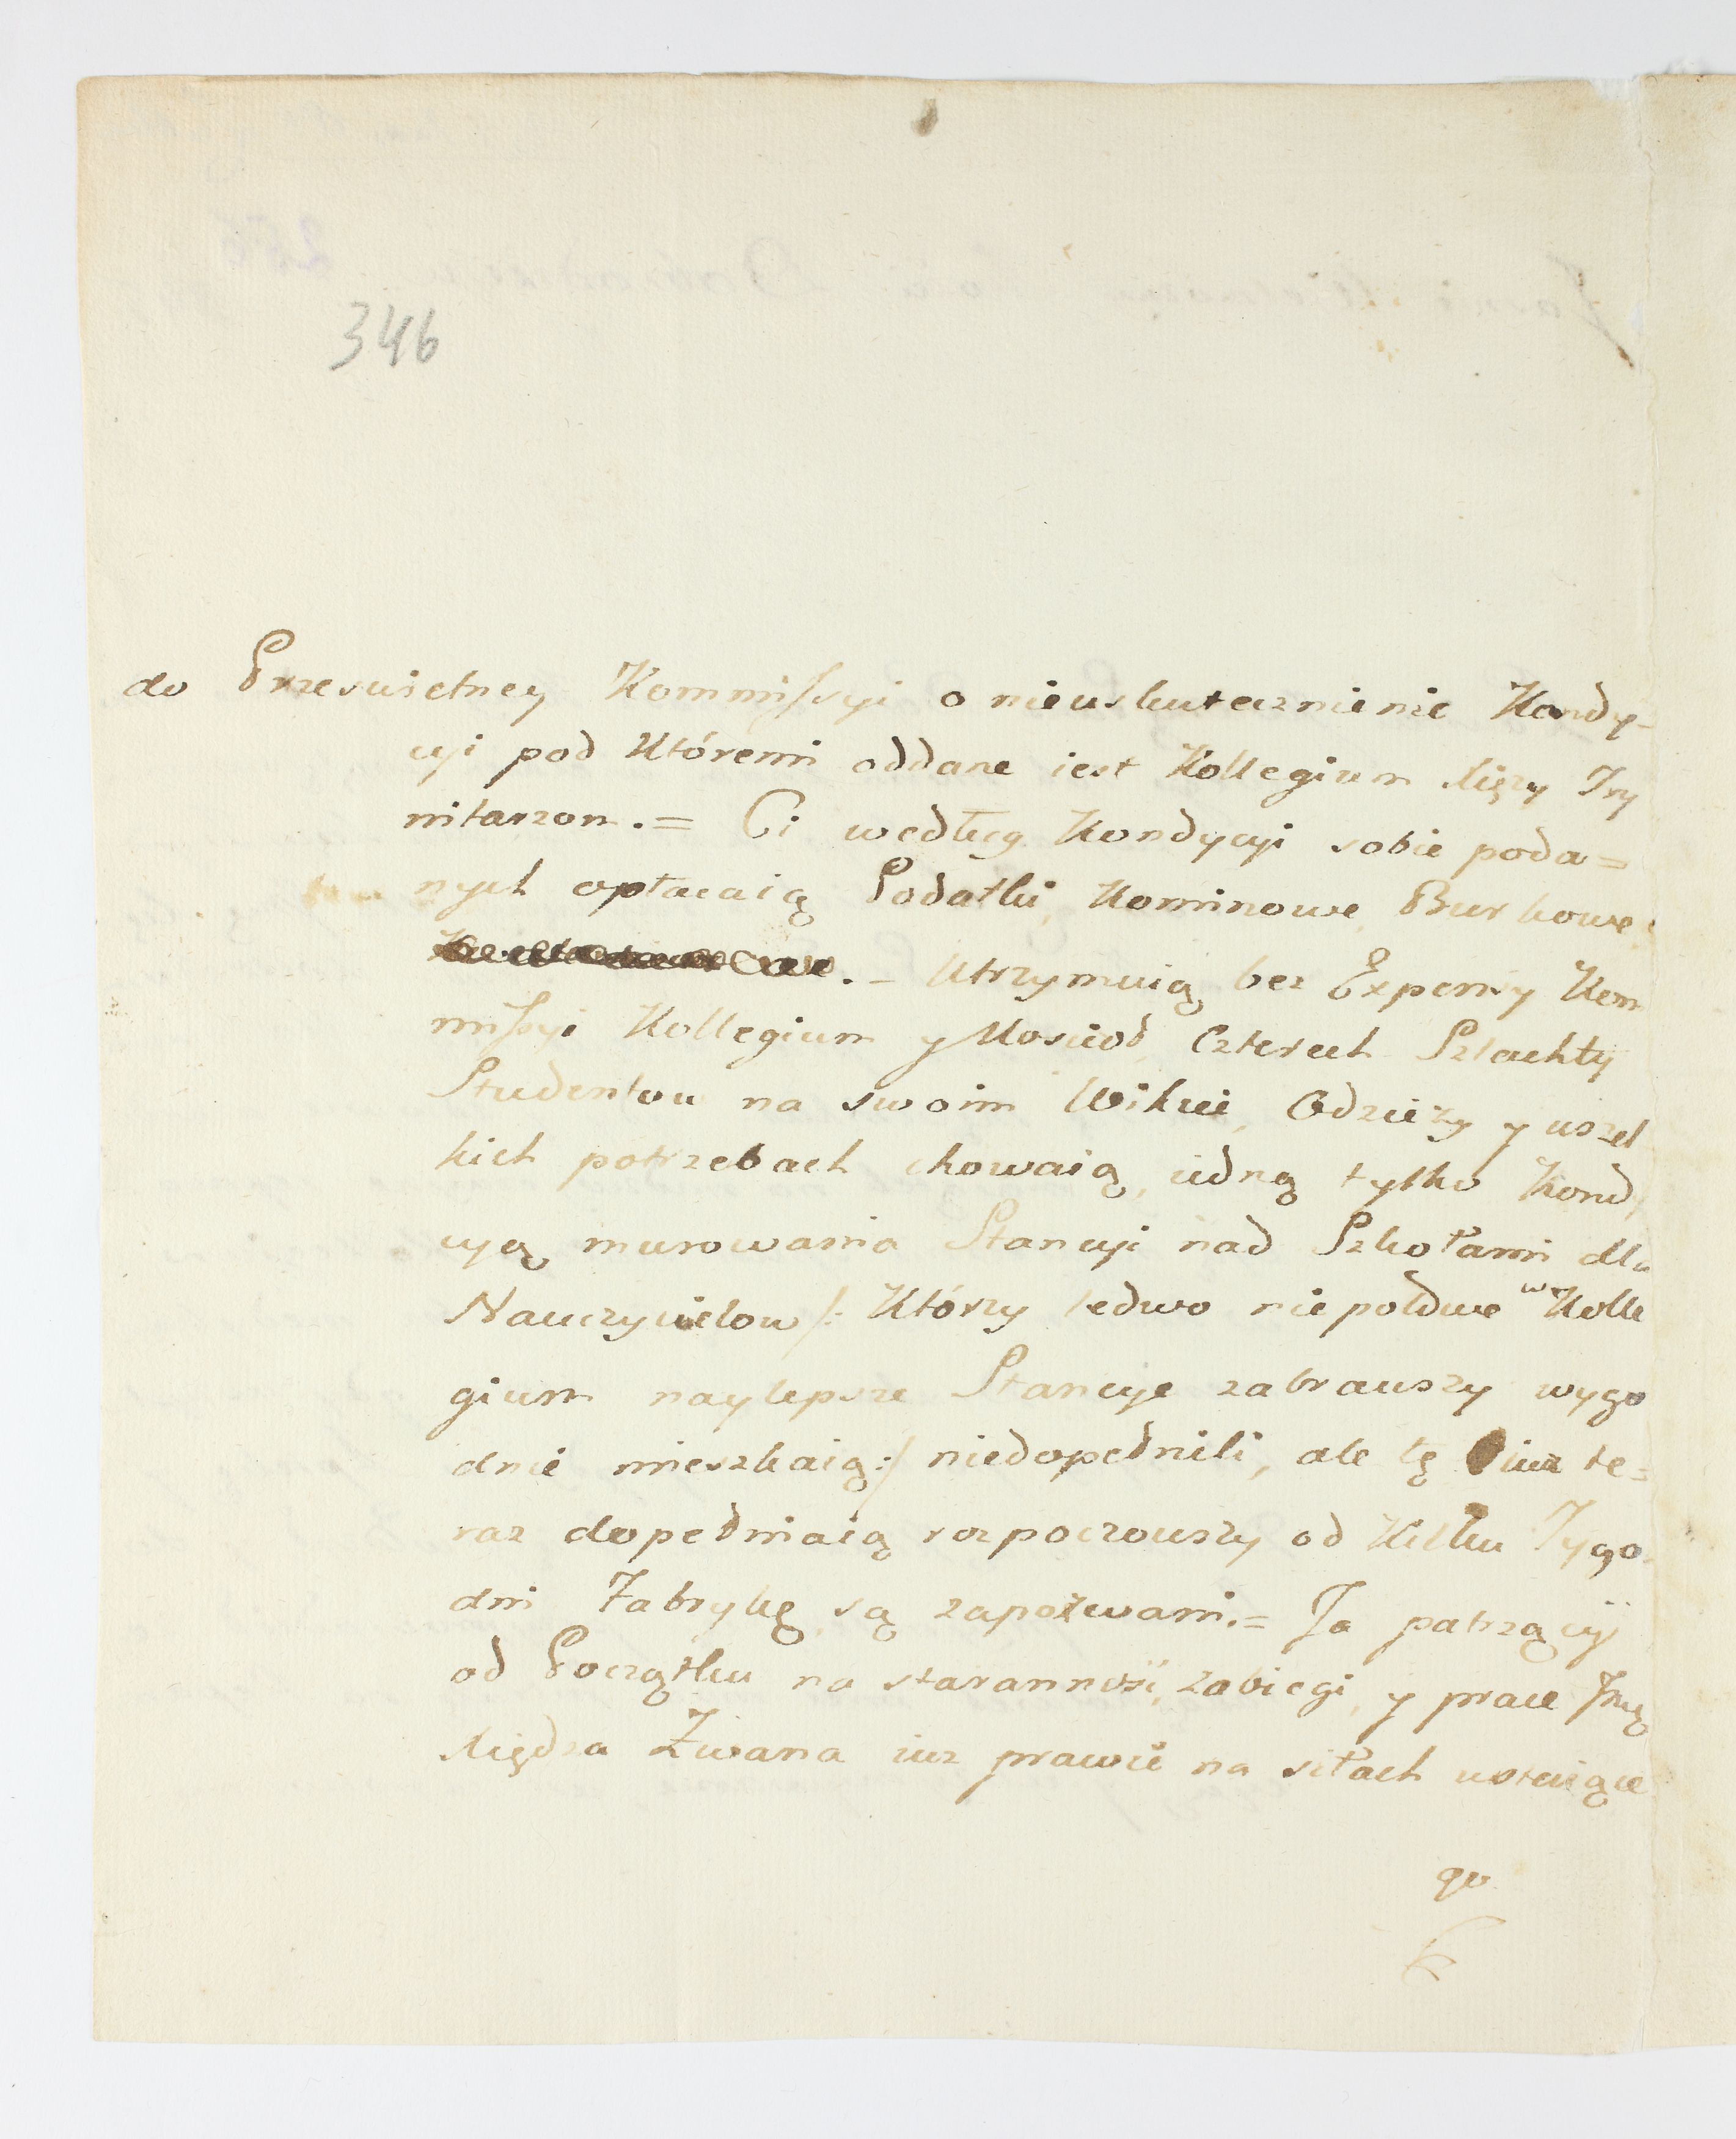 346
do Przeswietney Kommissyi o nieuskutecznienie Kondy-
cyi pod Któremi oddane iest Kollegium Xięży Try
nitarzom.= Ci według Kondycyi sobie poda=
nych opłacaią Podatki, Kominowe, Burkowe,
.- Utrzymuią bez Expensy Kom
missyi Kollegium y Koscioł, Czterech Szlachty
Studentow na swoim Wikcie, Odzieży y wszel
kich potrzebach chowaią, iedną tylko Kond
cyą murowania Stancyi nad Szkołami dla
Nauczycielow /: Którzy ledwo nie połowe w Kolle
gium naylepsze Stancye zabrawszy wygo
dnie mieszkaią :/ niedopełnili, ale tę iuż te=
raz dopełniaią rozpoczowszy od Kilku Tygo.
dni Fabrykę, są zapozwani.= Ja patrzący
od Początku na staranność, zabiegi, y prace
Xiędza Zwana iuz prawie na siłach ustaiące
go